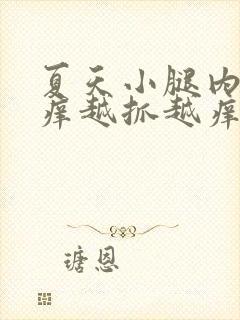 夏天小腿内
痒越抓越痒
瑭恩